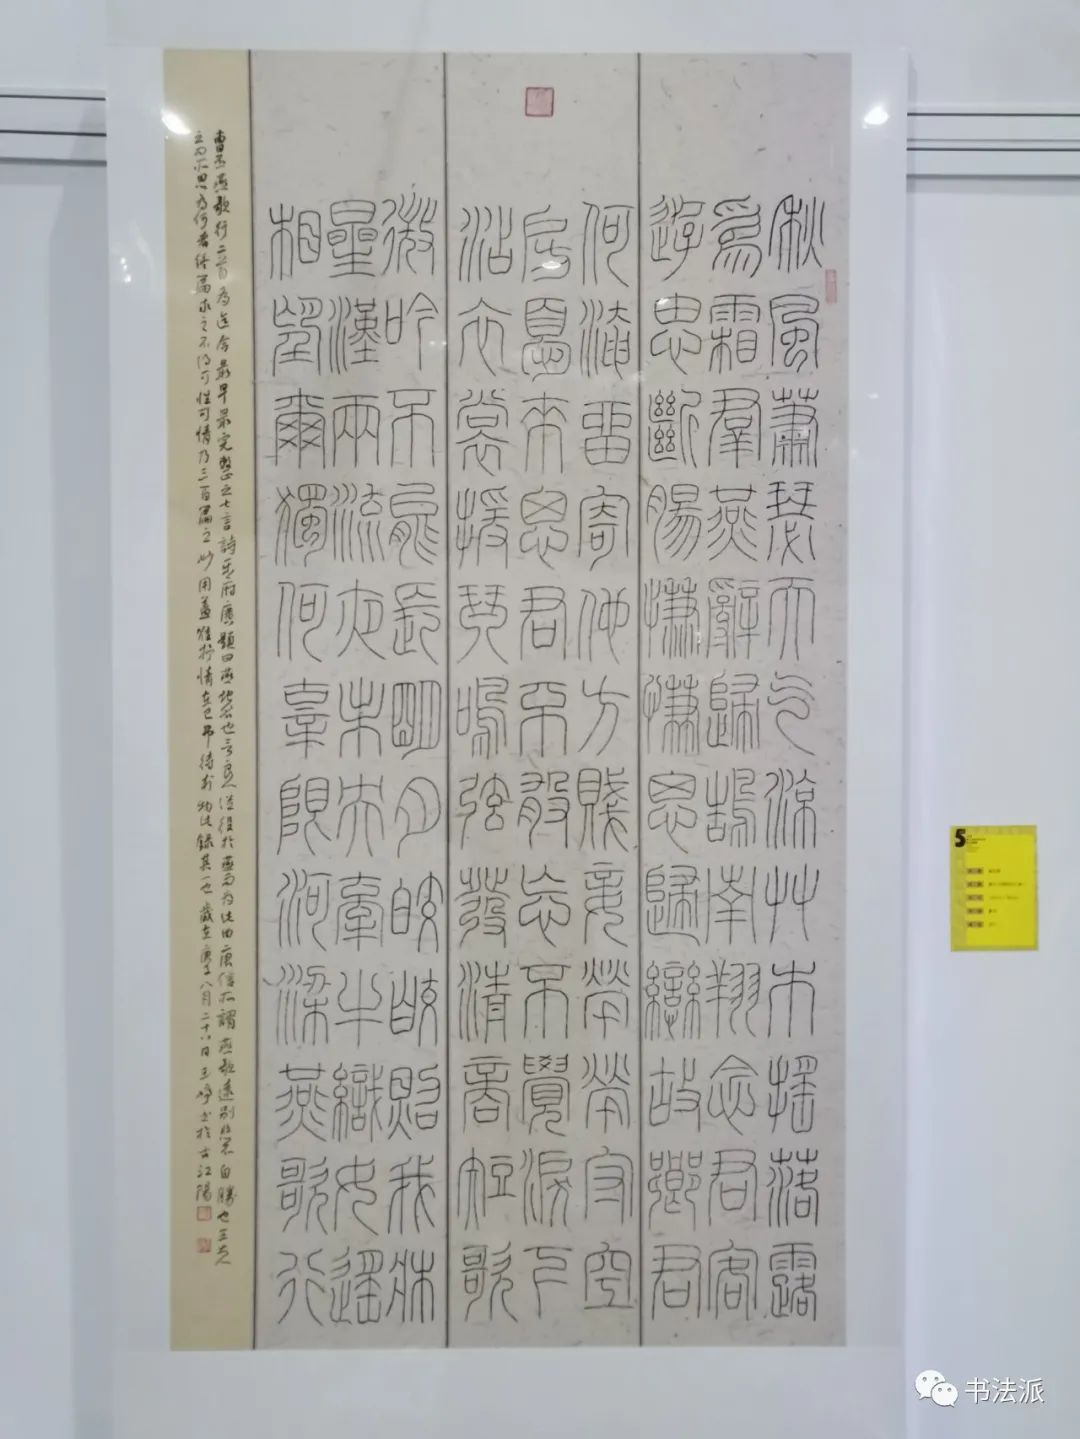 秋風蕭瑟天气涼艸木搖落露
爲霜羣燕辭歸鵠南翔念君客
遊思斷腸慊慊思歸戀故鄉君
何淹留寄他方賤妾煢煢守空
房憂來思君不敢忘不覺淚下
沾衣裳援琴鳴弦發清商短歌
微吟不能長明月皎皎照我牀
星漢西流夜未央牽牛織女遙
相望爾獨何辜限河梁燕歌行
曹丕燕歌行二首为迄今最早最完整之七言詩乐府廣題曰燕地名也言良人從役於燕而为此曲庾信所謂燕歌遠别悲不自勝也王夫
之曰所思为何者終篇求之不得可性可情乃三百篇之妙用蓋唯抒情在己弗待於物此錄其一也歲在庚子八月二十八日王峥书於古江陽
5
书法派